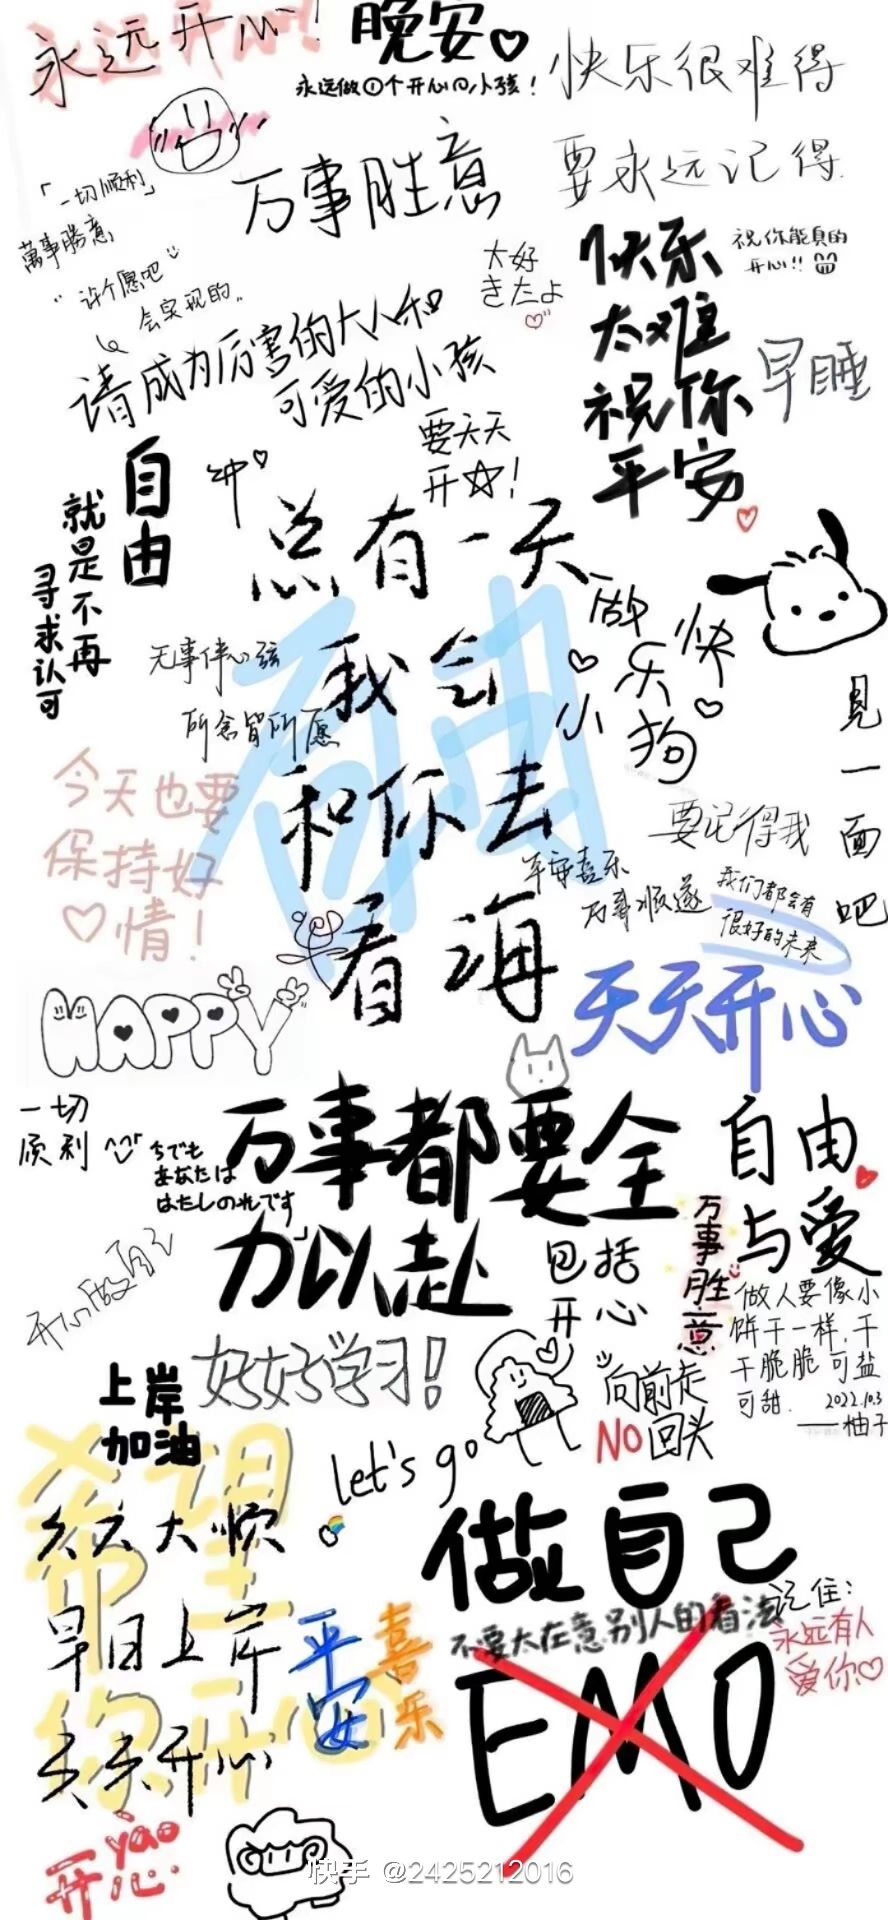 永远开心!
晚安
永远做1个开心の小孩!
快乐很难得
要永远记得
「一切顺利」
萬事勝意
万事胜意
"许个愿吧
会实现的..
大好
きだよ
快乐
太难
祝你
平安
祝你能真的
开心!!
早睡
请成为厉害的大人和
可爱的小孩
要天天
开☆!
自由
就是不再
寻求认可
冲
总有一天
我会
和你去
看海
自由
做快乐小狗
見一面吧
无事伴心弦
所念皆所愿
今天也要
保持好
♡情!
要记得我
平安喜乐
万事顺遂
我们都会有
很好的未来
天天开心
HAPPY
一切
顺利
万事都要全
力以赴
包括
开心
自由
与爱
万事胜意
あなたは
开心做自己
做人要像小
饼干一样,干
干脆脆可盐
可甜.
2022.10.3
——柚子
好好学习!
上岸
加油
向前走
NO回头
let's go
希望
你开心
天天大顺
早日上岸
天天开心
平安
喜乐
做自己
不要太在意别人的看法
EMO
记住:
永远有人
爱你♡
yào
开心.
快手 @2425212016